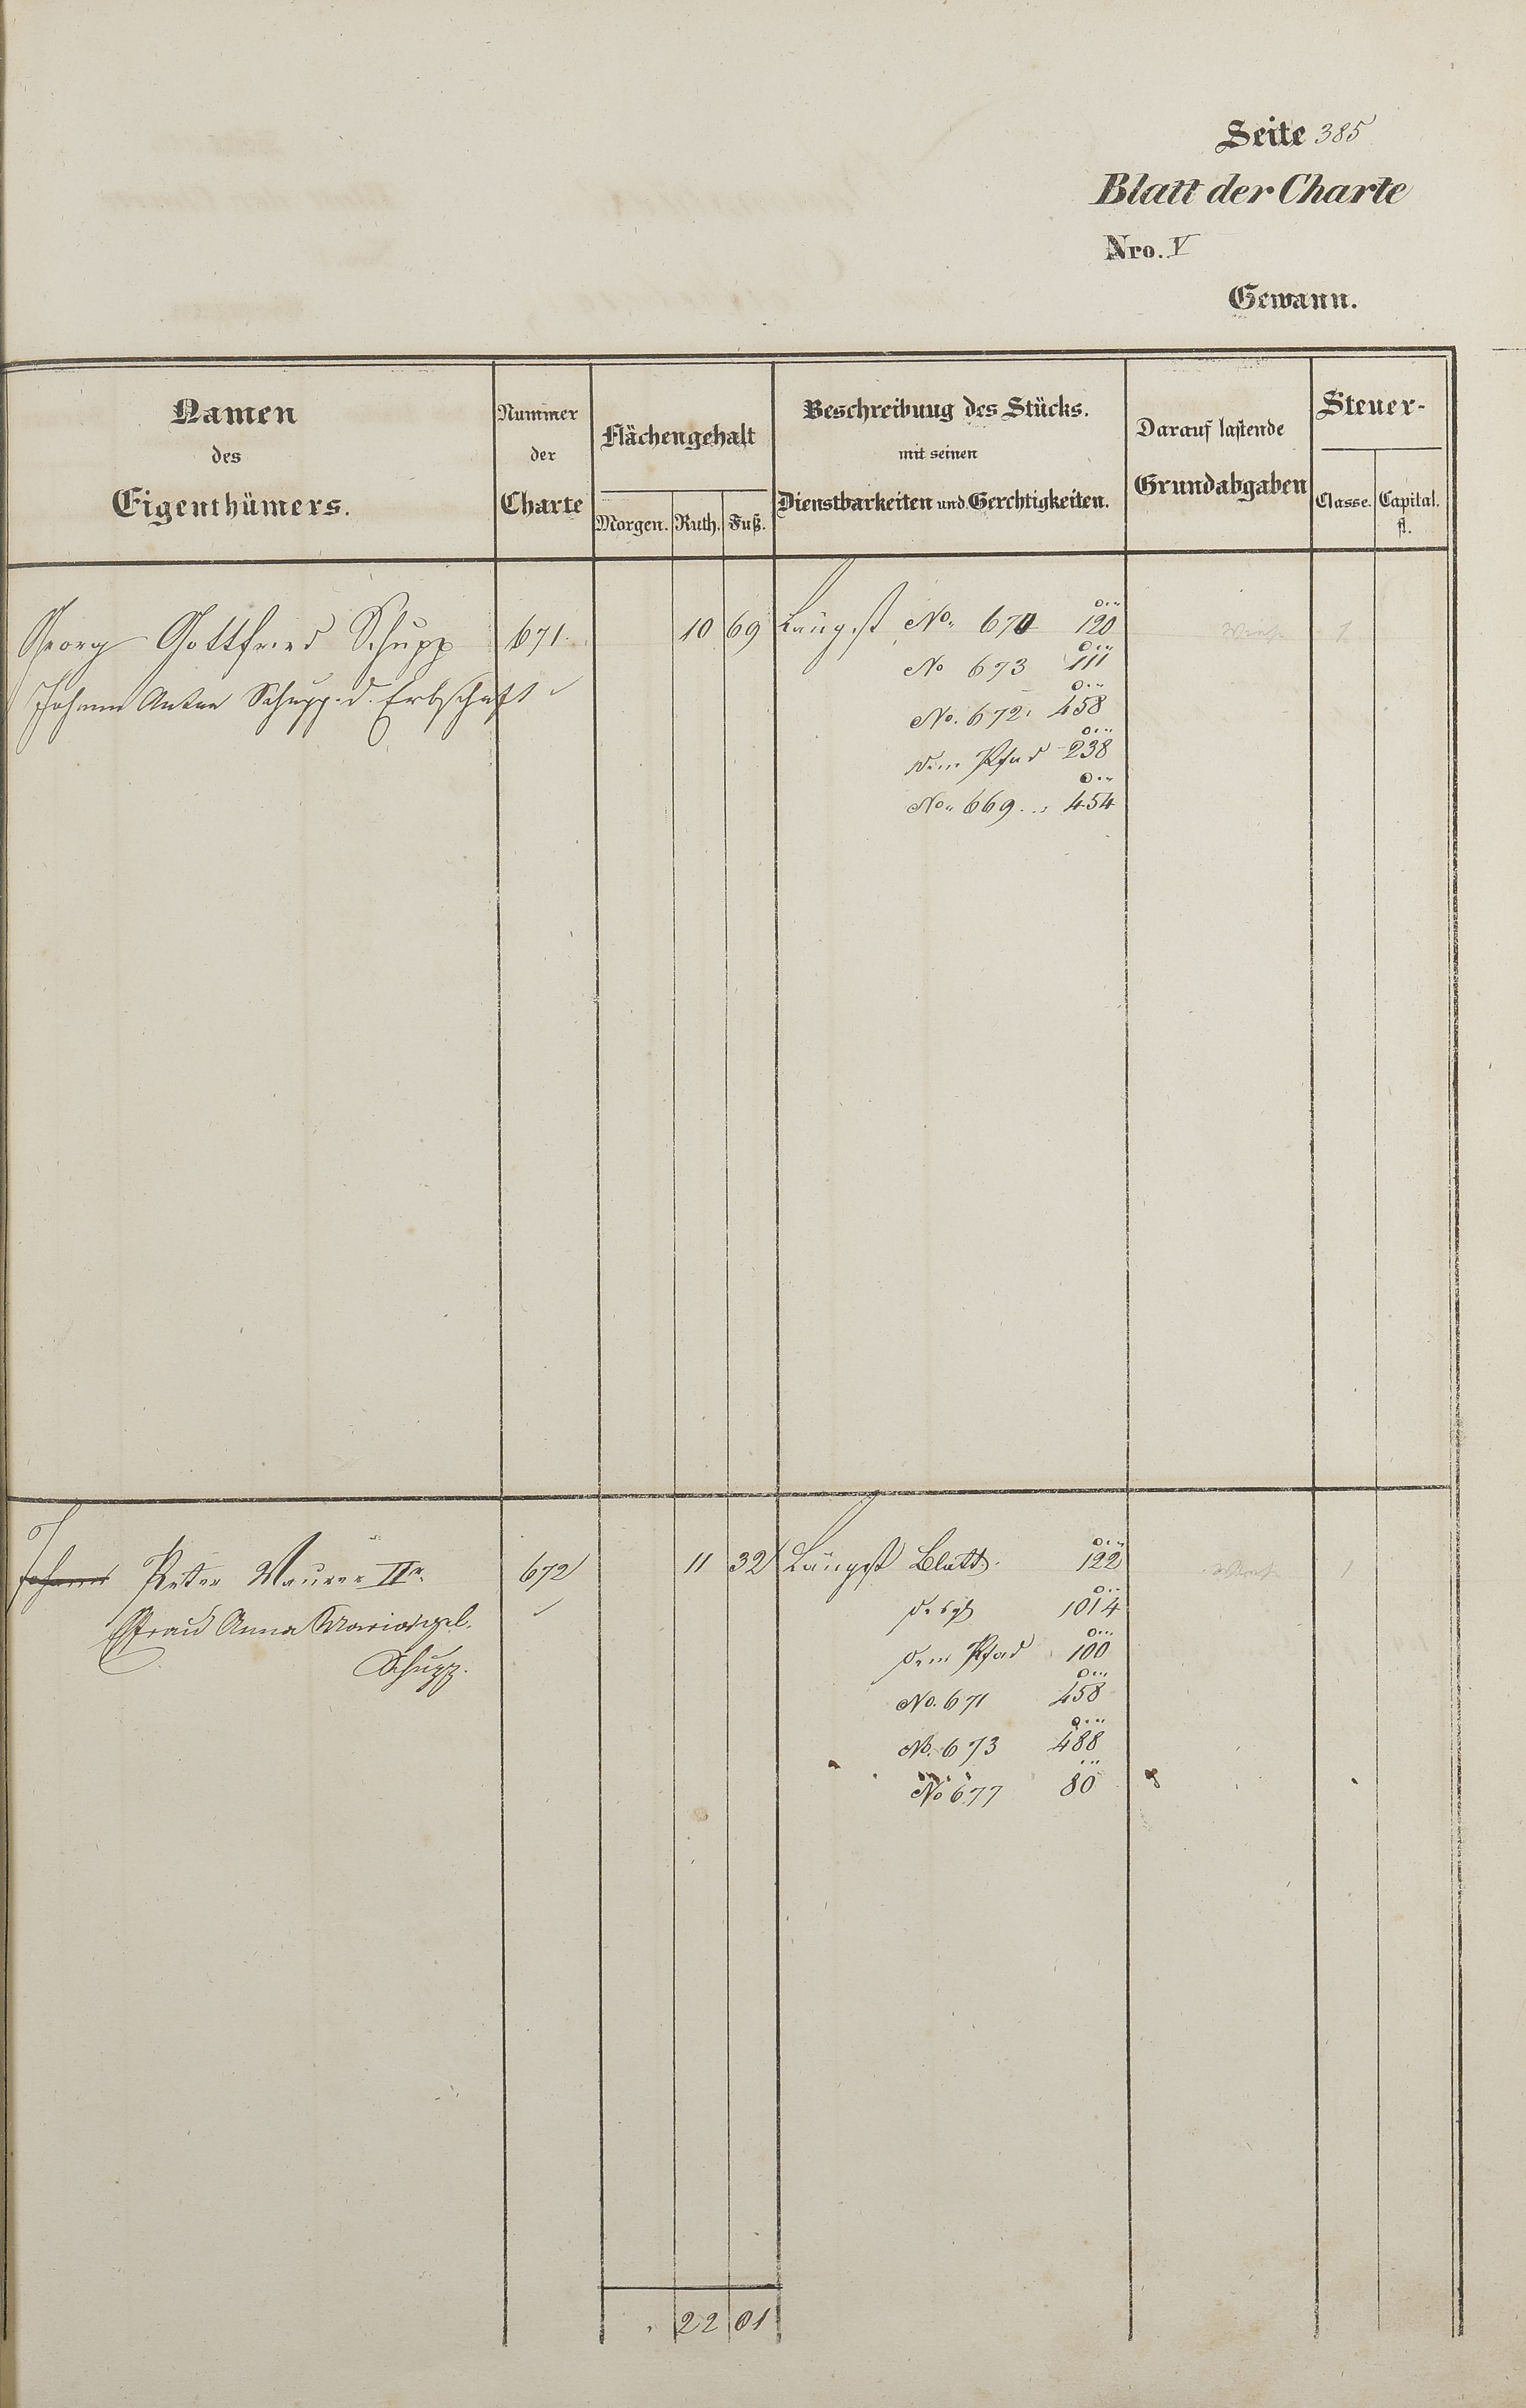 Seite 385
Blatt der Charte
Nro. V
Gewann.
Namen des Eigenthümers.
Nummer der Charte
Flächengehalt
Morgen. Ruth. Fuß.
Beschreibung des Stücks.
mit seinen
Dienstbarkeiten und Gerechtigkeiten.
Darauf lastende
Grundabgaben
Steuer-
Classe. Capital.
fl.
Georg Gottfried Schupp 671. 10 69 Längst No. 670 120 Wiese 1
No 673 111
Johann Anton Schupp d. Erbschaft
No. 672. 458
dem Pfad 238
No. 669 454
Johann Peter Maurer IIr. 672 11 32 Längst Blatt. 122 Wiese 1
Efrau Anna Maria gel. dsgl 1014
Schupp. dem Pfad 100
No. 671 458
No. 673 488
No 677 80
22 01